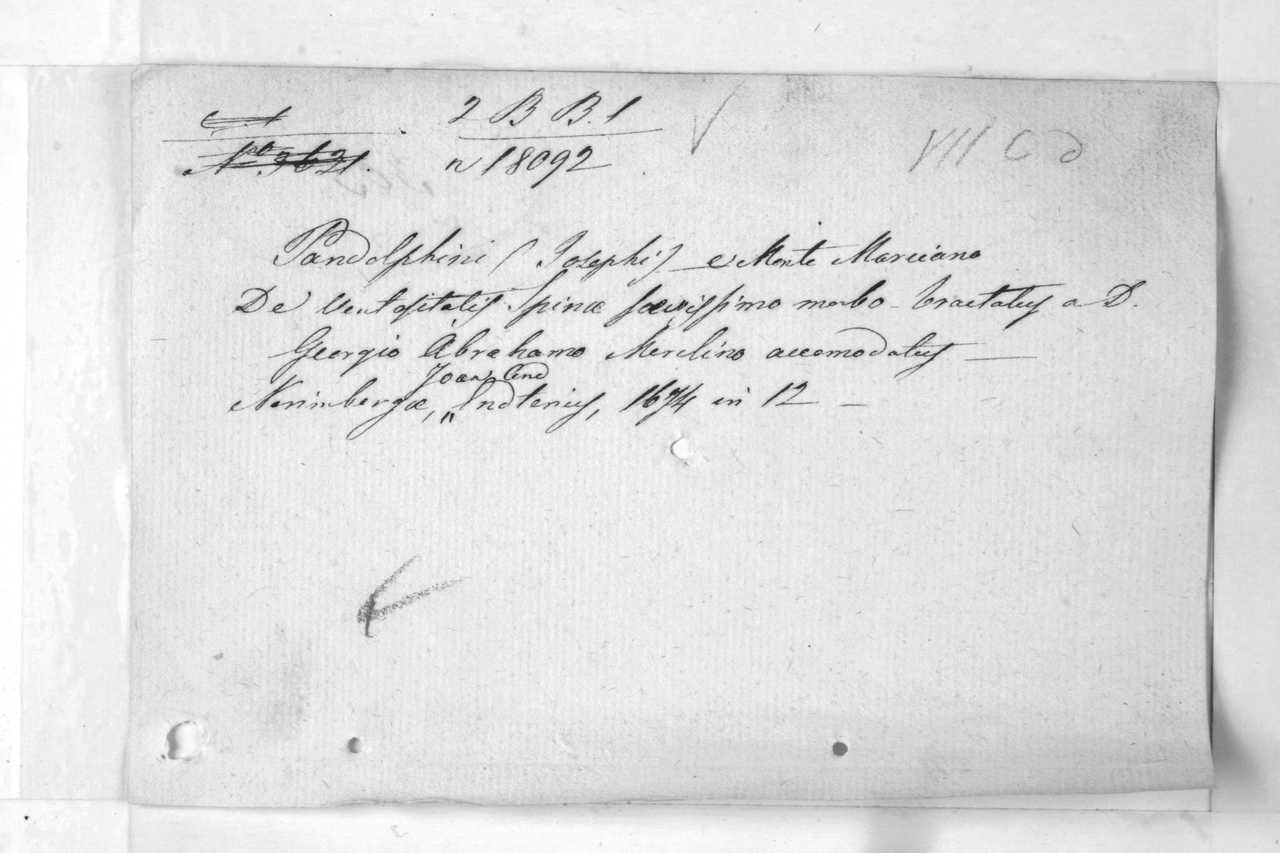 2 B B. 1
No. 3621. n 18092
VII C d
Pandolphini (Josephi) e Monte Marciano
De Ventositatis Spinæ sævissimo morbo tractatus a D.
Georgio Abrahamo Merclino accomodatus —
Joan. And
Norimbergæ, Endterius, 1674 in 12 —